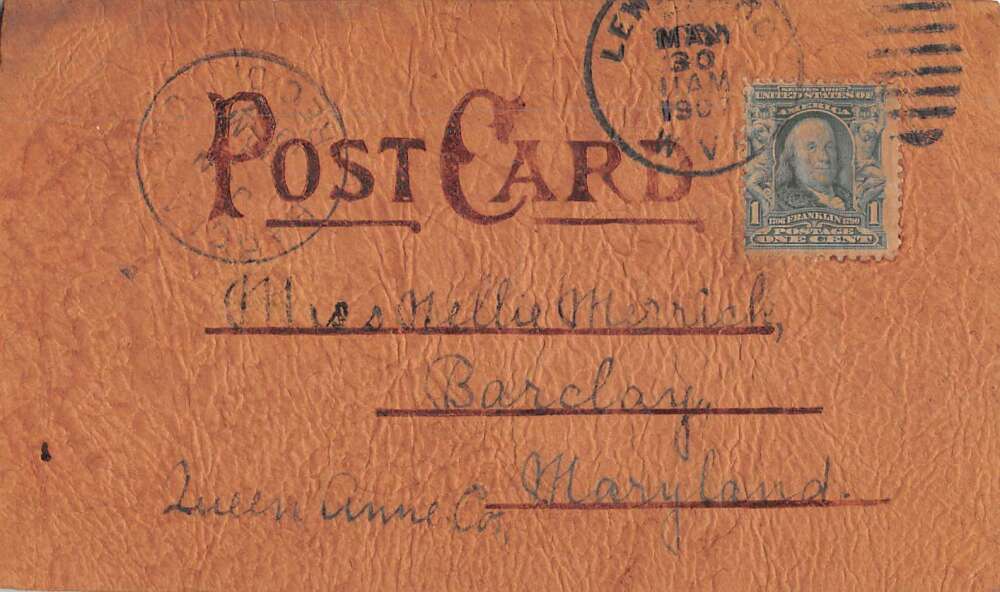 MAR
30
11 AM
1907
W. V
REC'D
POST CARD
SERIES 1902
UNITED STATES OF
AMERICA
1 1
1706 FRANKLIN 1790
POSTAGE
ONE CENT
Miss Nellie Merrick,
Barclay,
Maryland.
Queen Anne Co,